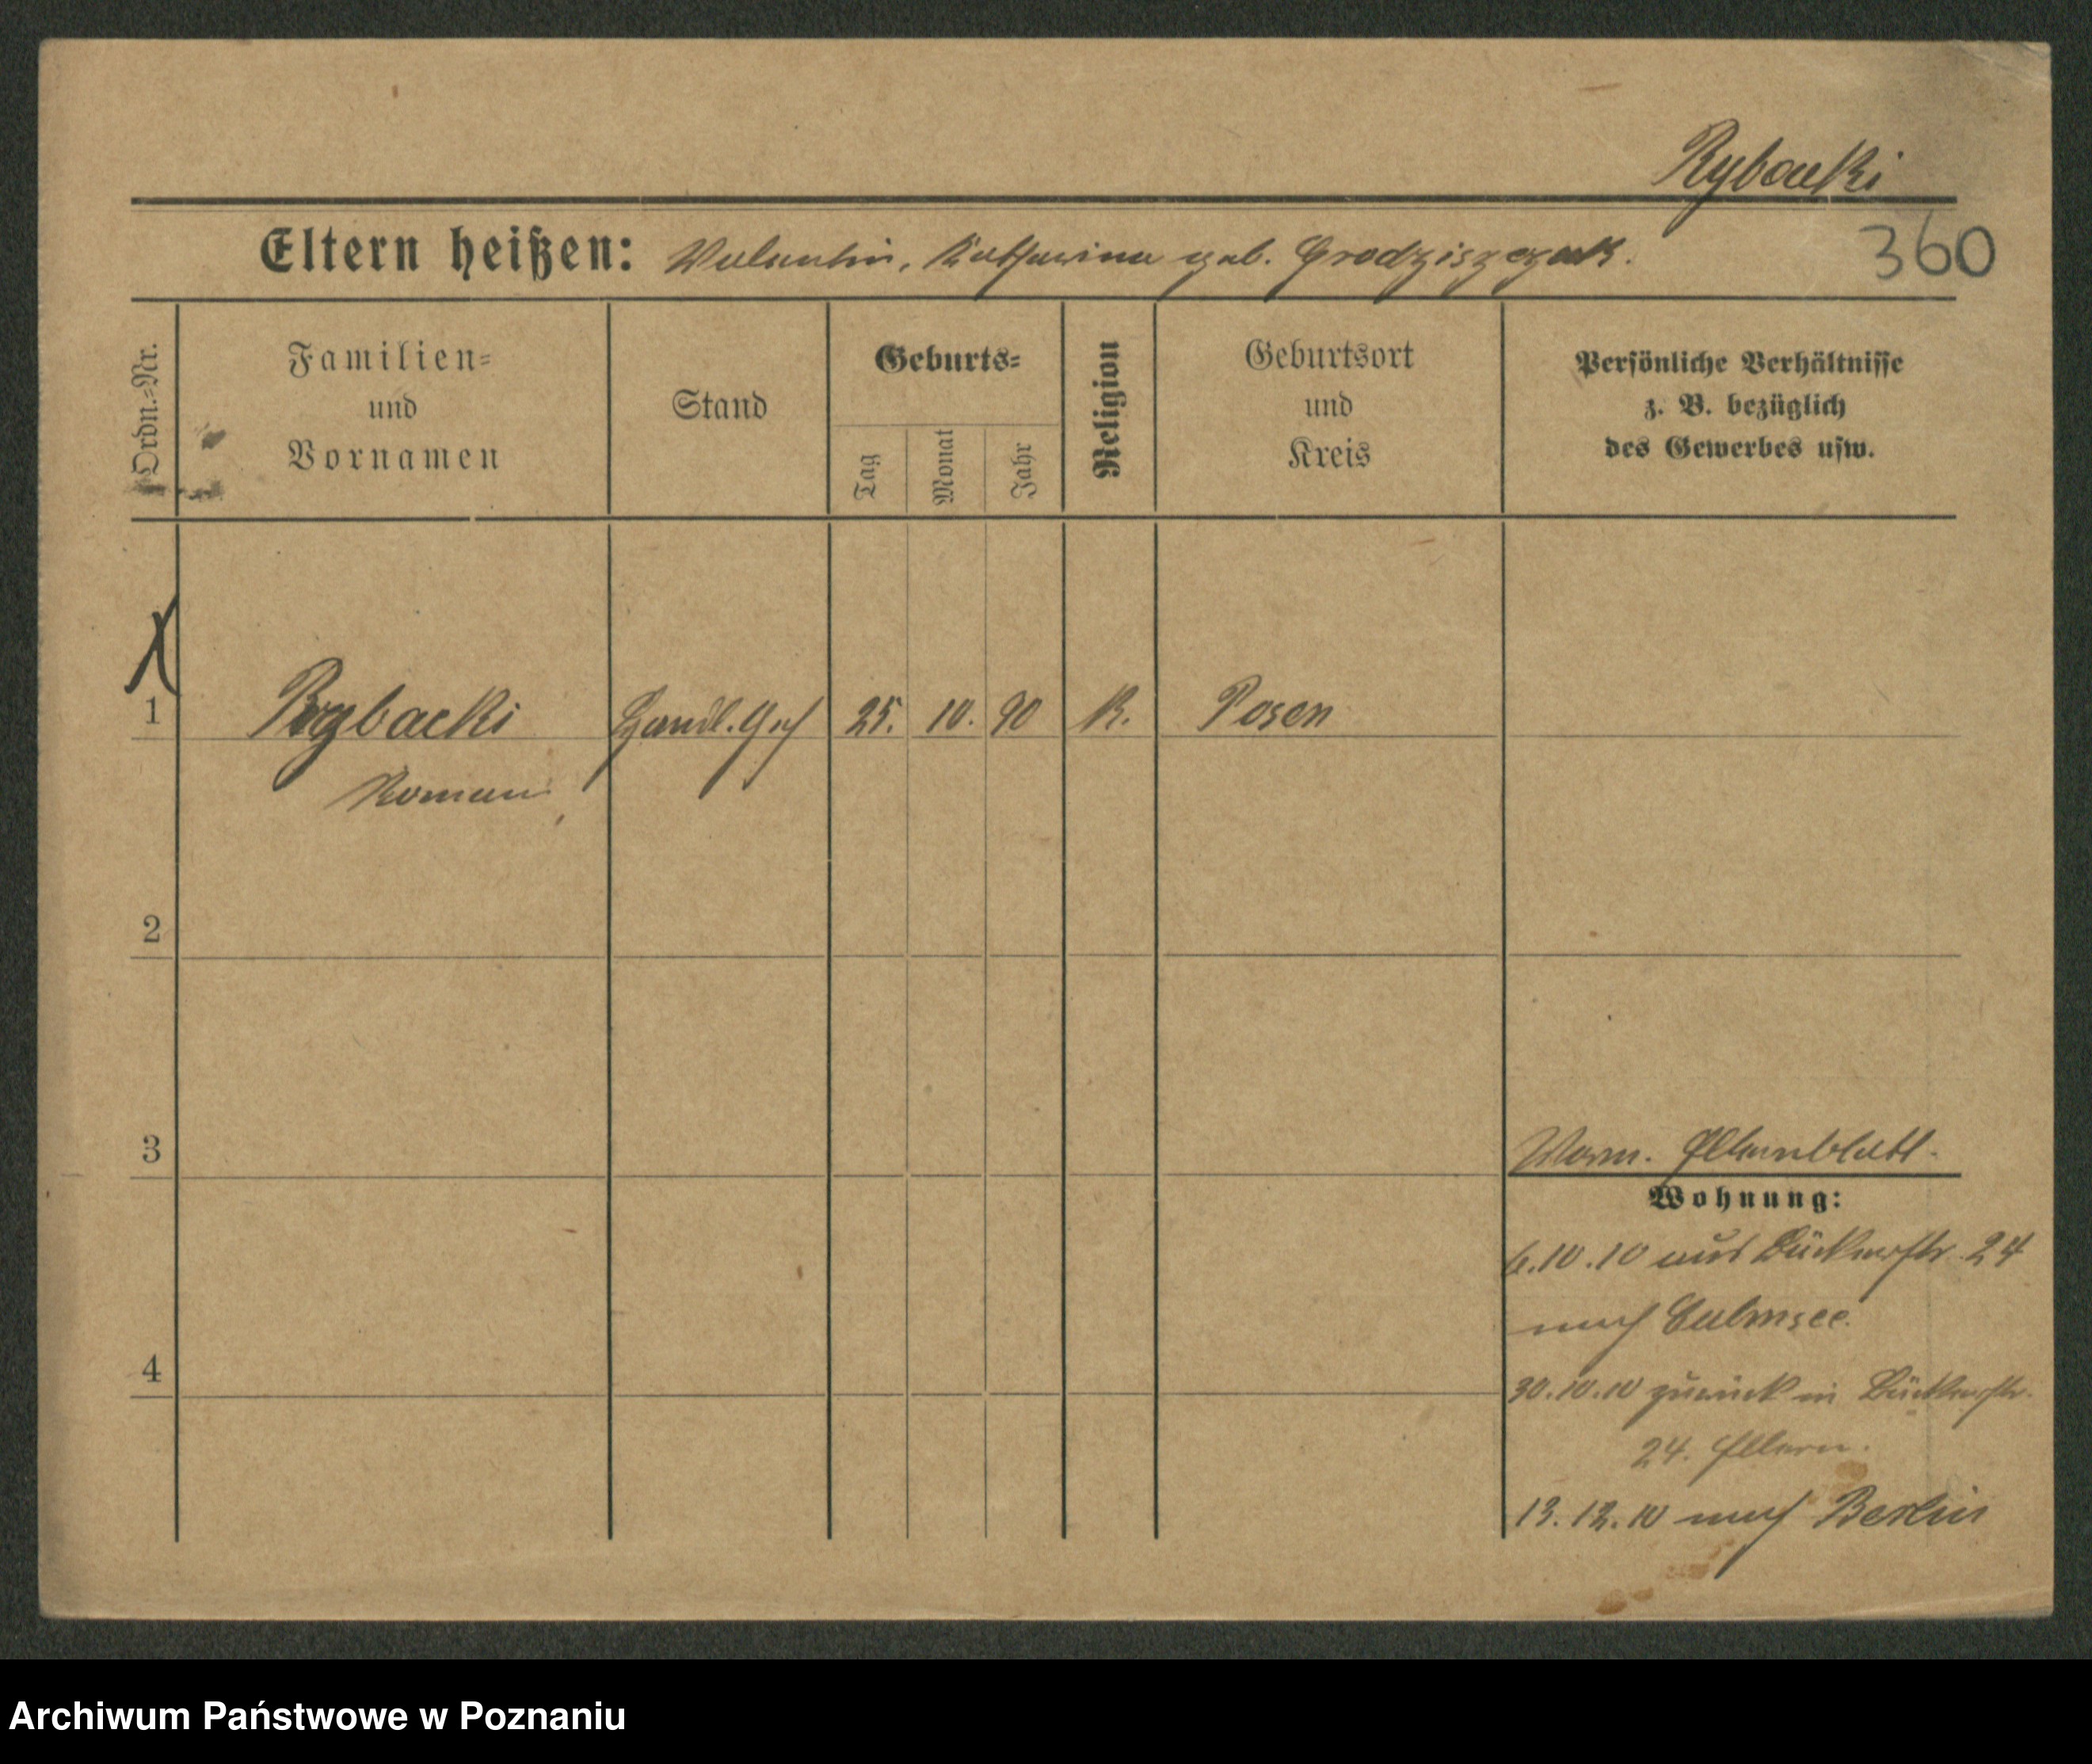 Rybacki
Eltern heißen: Valentin, Katharina geb. Grodziszczak.
360
Ordn.=Nr.
Familien=
und
Vornamen
Stand
Geburts=
Tag
Monat
Jahr
Religion
Geburtsort
und
Kreis
Persönliche Verhältnisse
z. B. bezüglich
des Gewerbes usw.
1 Rybacki Handl. Geh 25. 10. 90 K. Posen
Roman
2
3
Vorm. Elternblatt.
Wohnung:
6.10.10 aus Bäckerstr. 24
nach Culmsee.
4
30.10.10 zurück in Bäckerstr.
24. Eltern.
13.12.10 nach Berlin
Archiwum Państwowe w Poznaniu